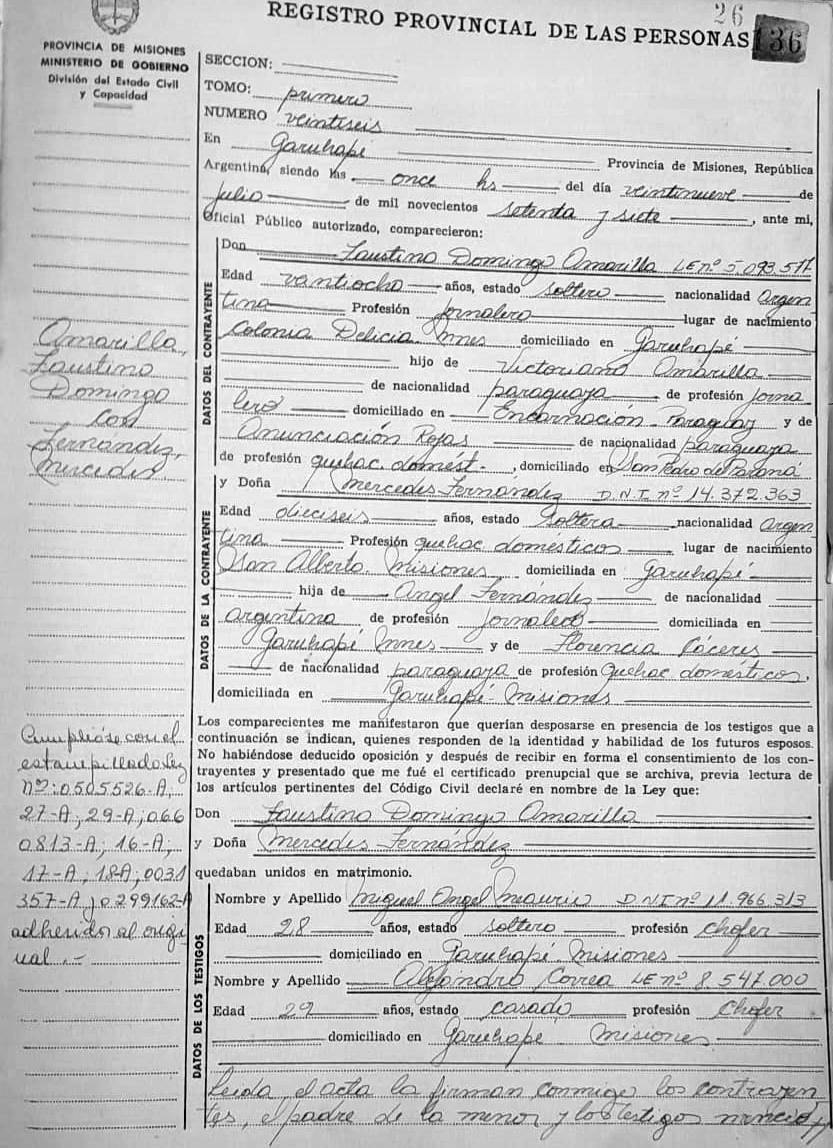 26
REGISTRO PROVINCIAL DE LAS PERSONAS 136
PROVINCIA DE MISIONES
MINISTERIO DE GOBIERNO
División del Estado Civil
y Capacidad
Amarilla,
Faustino
Domingo
con
Fernández,
Mercedes.
Cumplióse con el
estampillado Ley
Nº: 0505526-A,
27-A; 29-A; 066
0813-A; 16-A,
17-A, 18-A; 0031
357-A, 0299162-A
adheridos al origi
nal.-
SECCION:
TOMO: primero
NUMERO veintiseis
En Garuhapé Provincia de Misiones, República
Argentina, siendo las once hs del día veintinueve de
julio de mil novecientos setenta y siete, ante mi,
Oficial Público autorizado, comparecieron:
DATOS DEL CONTRAYENTE
Don Faustino Domingo Amarilla LE nº 5.093.577
Edad vantiocho años, estado soltero nacionalidad argen
tina Profesión jornalero lugar de nacimiento
Colonia Delicia Mnes domiciliado en Garuhapé
hijo de Victoriano Amarilla
de nacionalidad paraguaya de profesión jorna
lero domiciliado en Encarnación - Paraguay y de
Anunciación Rojas de nacionalidad paraguaya
de profesión quehac. domést. -, domiciliado en San Pedro de Paraná
DATOS DE LA CONTRAYENTE
y Doña Mercedes Fernández D.N.I nº 14.372.363
Edad dieciseis años, estado soltera nacionalidad argen
tina Profesión quehac domésticos lugar de nacimiento
San Alberto. Misiones domiciliada en Garuhapé
hija de Angel Fernández de nacionalidad
argentina de profesión jornalero domiciliada en
Garuhapé Mnes y de Florencia Cáceres
de nacionalidad paraguaya de profesión Quehac domésticos.
domiciliada en Garuhapé Misiones
Los comparecientes me manifestaron que querían desposarse en presencia de los testigos que a
continuación se indican, quienes responden de la identidad y habilidad de los futuros esposos.
No habiéndose deducido oposición y después de recibir en forma el consentimiento de los con-
trayentes y presentado que me fué el certificado prenupcial que se archiva, previa lectura de
los artículos pertinentes del Código Civil declaré en nombre de la Ley que:
Don Faustino Domingo Amarilla
y Doña Mercedes Fernández
quedaban unidos en matrimonio.
DATOS DE LOS TESTIGOS
Nombre y Apellido Miguel Angel D.N.I nº 11.966.313
Edad 28 años, estado soltero profesión chofer
domiciliado en Garuhapé. Misiones
Nombre y Apellido Alejandro Correa LE nº 8.547.000
Edad 29 años, estado casado profesión chofer
domiciliado en Garuhapé Misiones
Leida el acta la firman conmigo los contrayen
tes, el padre de la menor y los testigos